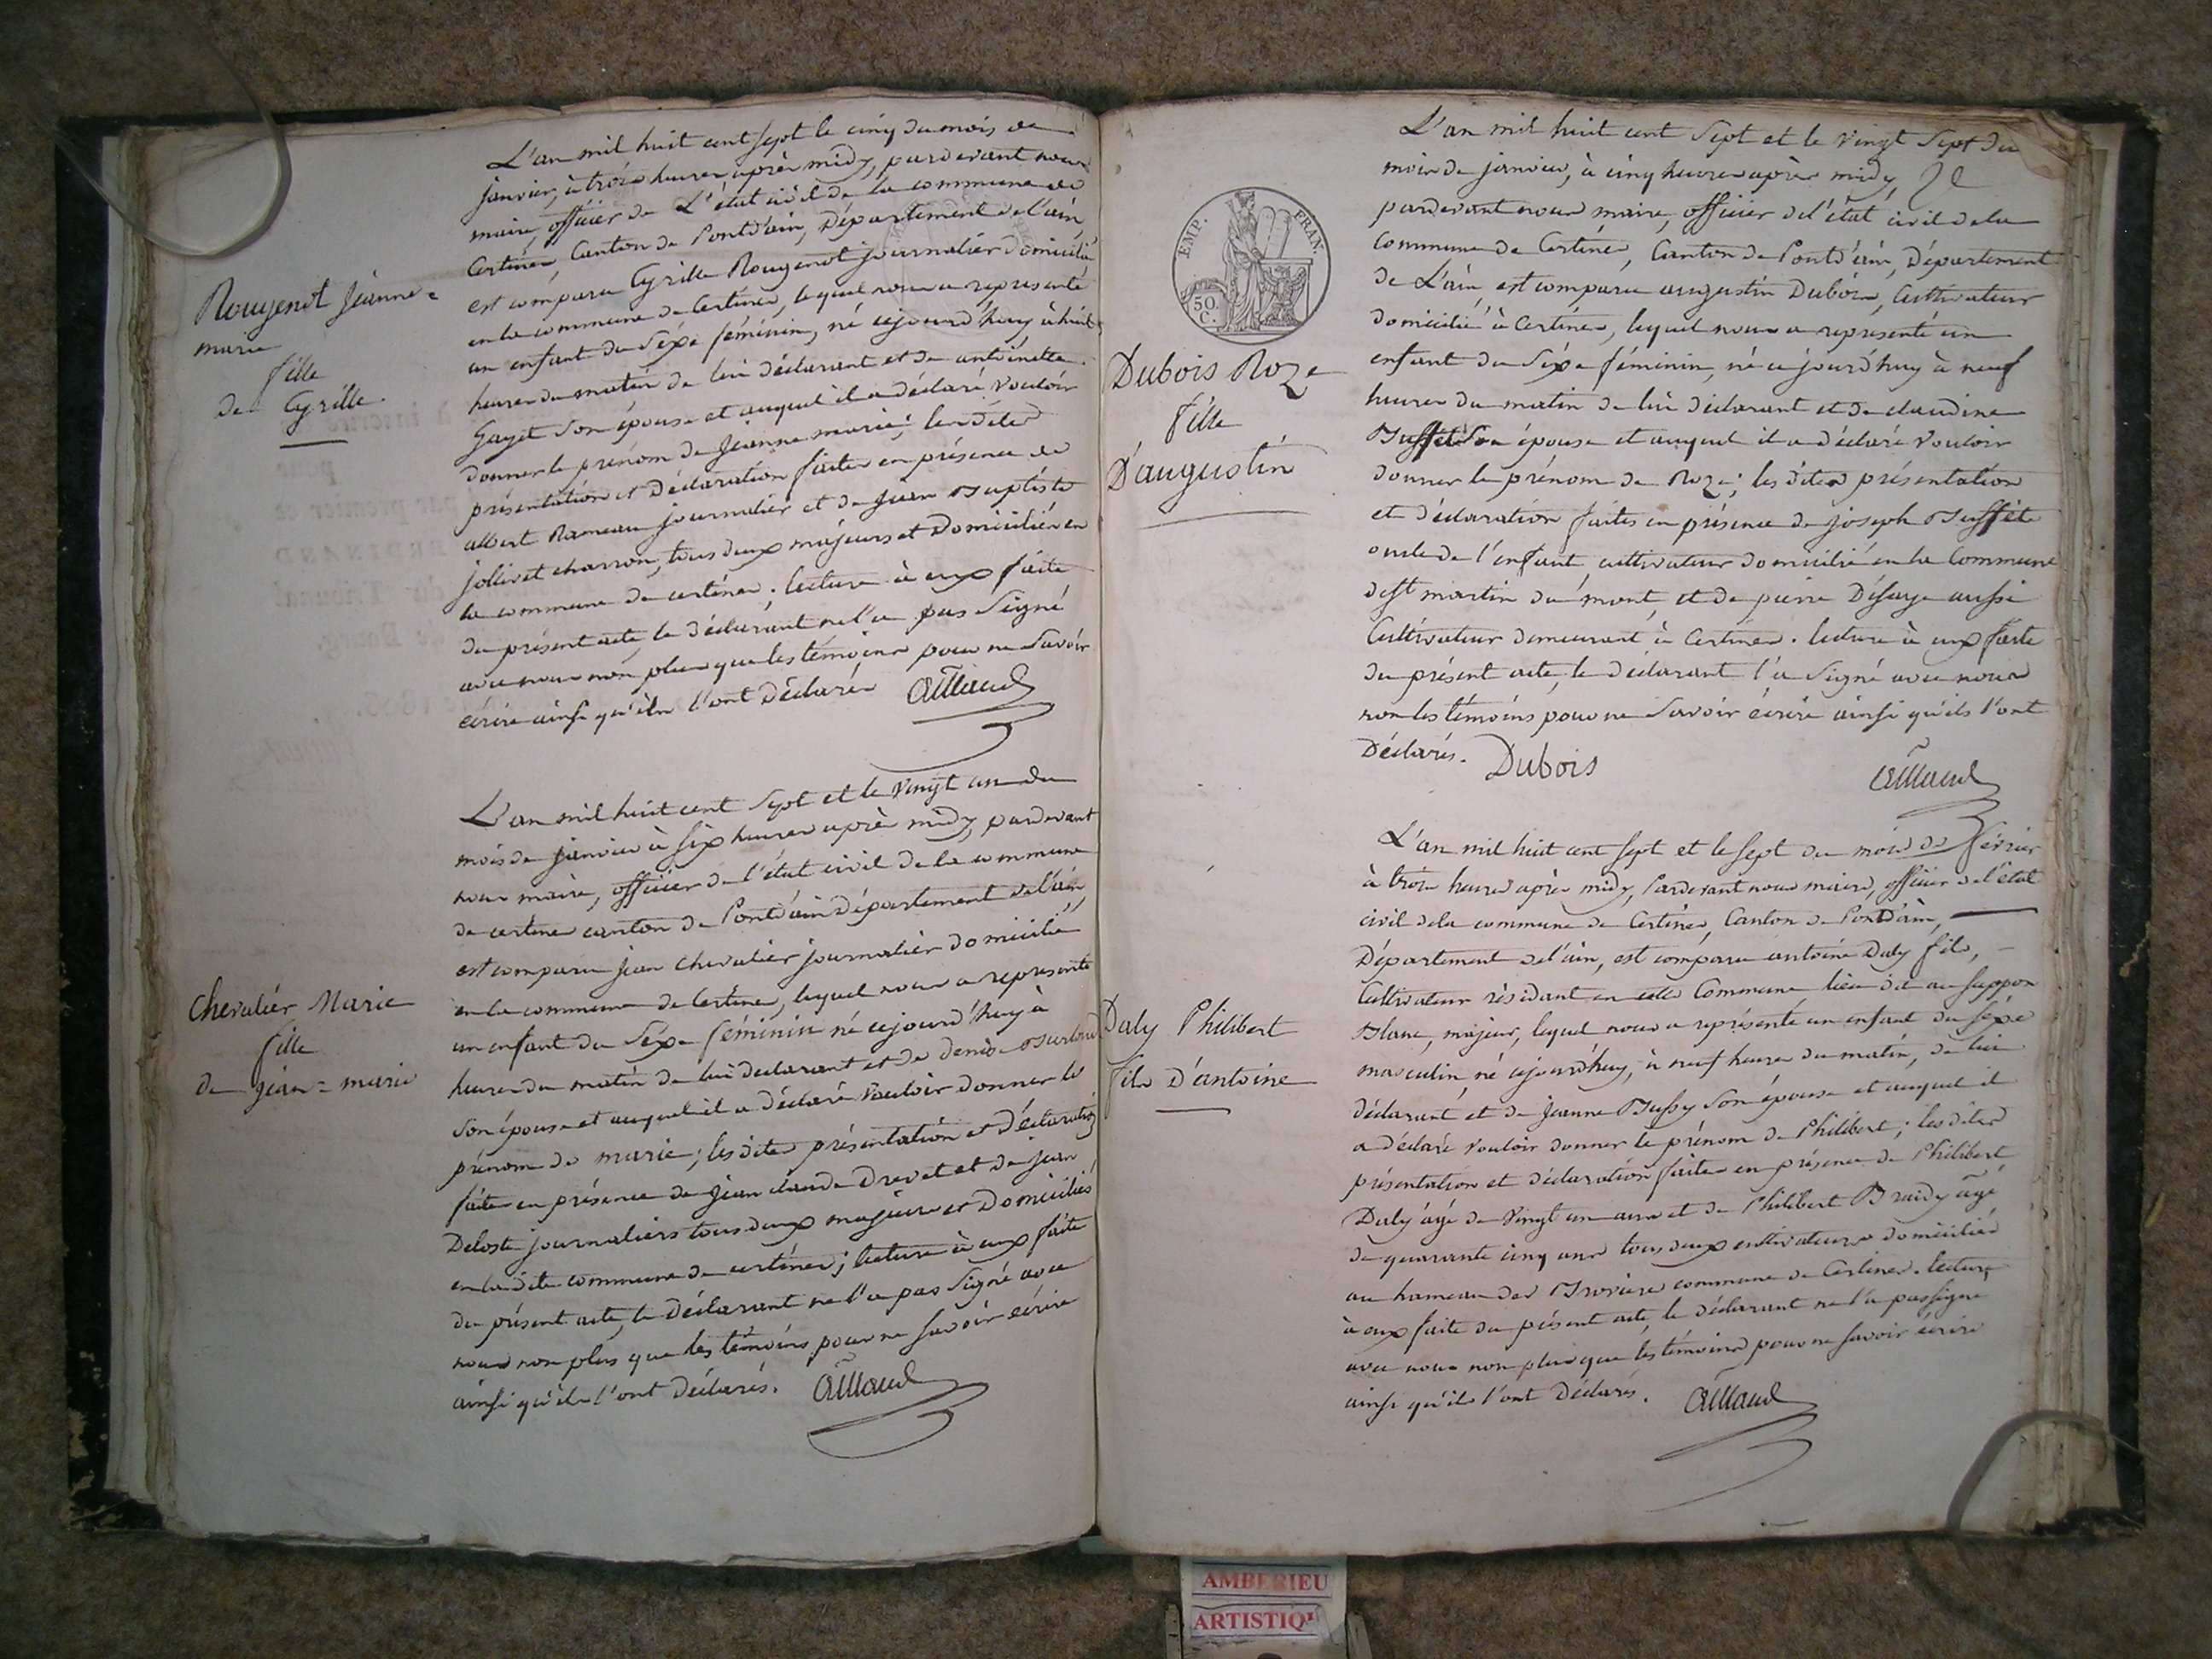 Rougenot Jeanne=
marie
fille
de Cyrille.
L'an mil huit cent sept le cinq du mois de
janvier, à trois heures après midy, pardevant nous
maire, officier de L'état civil de la commune de
Certines, Canton de Pontd'ain, Département de l'ain,
est comparu Cyrille Rougenot journalier domicilié
en la commune de Certines, lequel nous a representé
un enfant du Séxe féminin, né cejourd'huy à huit
heures du matin de lui déclarant et de antoinette
Gayet Son épouse et auquel il a déclaré vouloir
donner le prénom de Jeanne marie; les dites
présentation et Déclaration faites en présence de
albert Rameau journalier et de Jean Baptiste
jollivet charron, tous deux majeurs et Domiciliés en
la commune de certines; lecture à eux faite
du présent acte, le déclarant ne l'a pas Signé
avec nous non plus que les témoins pour ne Savoir
écrire ainsi qu'ils l'ont Déclarés
Chevalier Marie
fille
de jean=marie
L'an mil huit cent Sept et le vingt un du
mois de janvier à six heures après midy, pardevant
nous maire, officier de l'état civil de la commune
de certines canton de Pontd'ain Département de l'ain,
est comparu jean chevalier journalier domicilié
en la commune de Certines, lequel nous a representé
un enfant du Séxe féminin né cejourd'huy à
heures du matin de lui declarant et de denise
Son épouse et auquel il a déclaré vouloir donner le
prénom de marie; les dites présentation et déclaration
faites en présence de Jean claude Drevet et de jean
Deloste journaliers tous deux majeurs et Domiciliés
en ladite commune de certines; lecture à eux faite
du présent acte, le Déclarant ne l'a pas Signé avec
nous non plus que les témoins pour ne Savoir écrire
ainsi qu'ils l'ont Déclarés.
EMP. FRAN.
50
C.
Dubois Roze
fille
D'augustin
L'an mil huit cent Sept et le vingt Sept du
mois de janvier, à cinq heures après midy,
pardevant nous maire, officier de l'état civil de la
Commune de Certines, Canton de Pontd'ain, Département
de L'ain, est comparu augustin Dubois, Cultivateur
domicilié à Certines, lequel nous a representé un
enfant du Séxe féminin, né ce jourd'huy à neuf
heures du matin de lui déclarant et de claudine
Buffet Son épouse et auquel il a déclaré vouloir
donner le prénom de Roze; les dites présentation
et déclaration faites en présence de joseph Buffet
oncle de l'enfant, cultivateur domicilié en la Commune
de St martin du mont, et de pierre Désaye aussi
Cultivateur demeurant à Certines. lecture à eux faite
du présent acte, le déclarant l'a Signé avec nous
non les témoins pour ne Savoir écrire ainsi qu'ils l'ont
Déclarés. Dubois
Daly Philibert
fils D'antoine
L'an mil huit cent sept et le sept du mois de février
à trois heures après midy, Pardevant nous maire, officier de l'état
civil de la commune de Certines, Canton de Pontd'ain,
Département de l'ain, est comparu antoine Daly fils,
Cultivateur résidant en cette Commune lieu dit au sappon
Blanc, majeur, lequel nous a représenté un enfant du séxe
masculin, né cejourd'huy, à neuf heures du matin, de lui
déclarant et de Jeanne Bussy Son épouse et auquel il
a déclaré vouloir donner le prénom de Philibert; les dites
présentation et déclaration faites en présence de Philibert
Daly âgé de vingt un ans et de Philibert Braidy âgé
de quarante cinq ans tous deux cultivateurs domiciliés
au hameau des commune de Certines. lecture
à eux faite du présent acte, le déclarant ne l'a pas signé
avec nous non plus que les témoins pour ne savoir écrire
ainsi qu'ils l'ont Déclarés.
AMBERIEU
ARTISTIQ